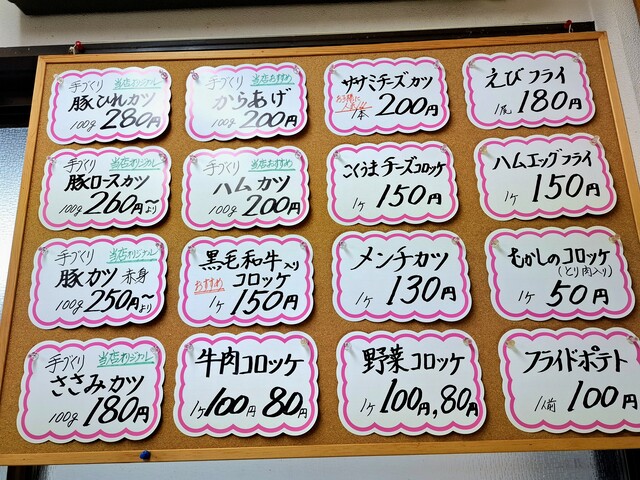 手づくり 当店オリジナル
豚ひれカツ
100g 280円
手づくり 当店おすすめ
からあげ
100g 200円
ササミチーズカツ
お子様に
1本 200円
えびフライ
1尾 180円
手づくり 当店オリジナル
豚ロースカツ
100g 260円〜より
手づくり 当店おすすめ
ハムカツ
100g 200円
こくうまチーズコロッケ
1ケ 150円
ハムエッグフライ
1ケ 150円
手づくり 当店オリジナル
豚カツ 赤身
100g 250円〜より
黒毛和牛入り
おすすめ コロッケ
1ケ 150円
メンチカツ
1ケ 130円
むかしのコロッケ
(とり肉入り)
1ケ 50円
手づくり 当店オリジナル
ささみカツ
100g 180円
牛肉コロッケ
1ケ 100円 80円
野菜コロッケ
1ケ 100円,80円
フライドポテト
1人前 100円